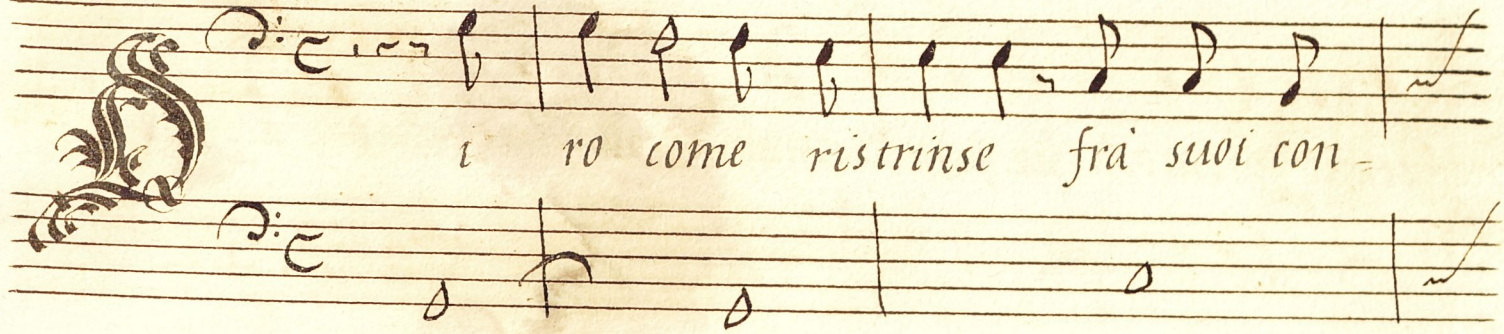 Di ro come ristrinse frà suoi con-